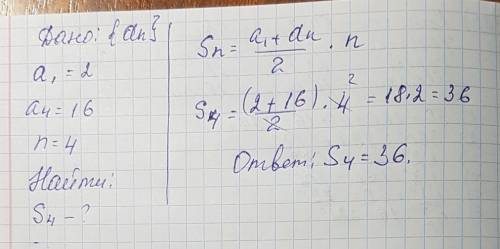 Дано: {an}
a₁ = 2
a₄ = 16
n = 4
Найти:
S₄ - ?
Sn = (a₁ + an)/2 · n
S₄ = (2 + 16)/2 · 4² = 18·2 = 36
Ответ: S₄ = 36.